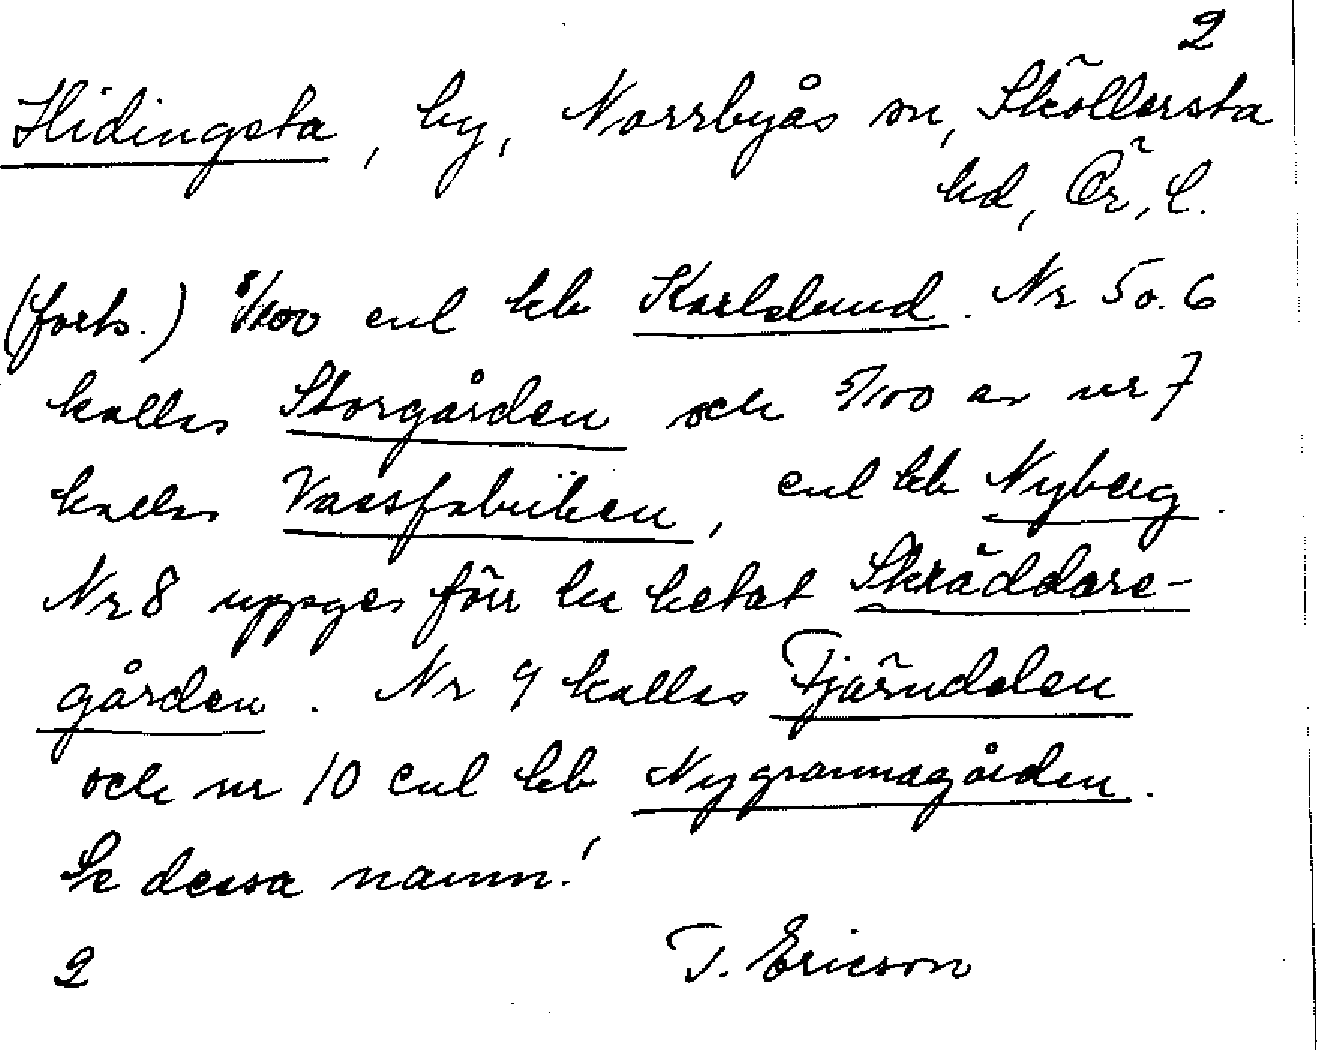 2
Hidingsta, by, Norrbyås sn, Sköllersta
hd, Ör, l.
(forts.) 8/100 enl kb Karlslund. Nr 5 o. 6
kallas Storgården och 5/100 av nr 7
kallas Vassfabriken, enl kb Nyberg.
Nr 8 uppges förr ha hetat Skräddare-
gården. Nr 9 kallas Fjärndelen
och nr 10 enl kb Nygrannagården.
Se dessa namn!
2 T. Ericson